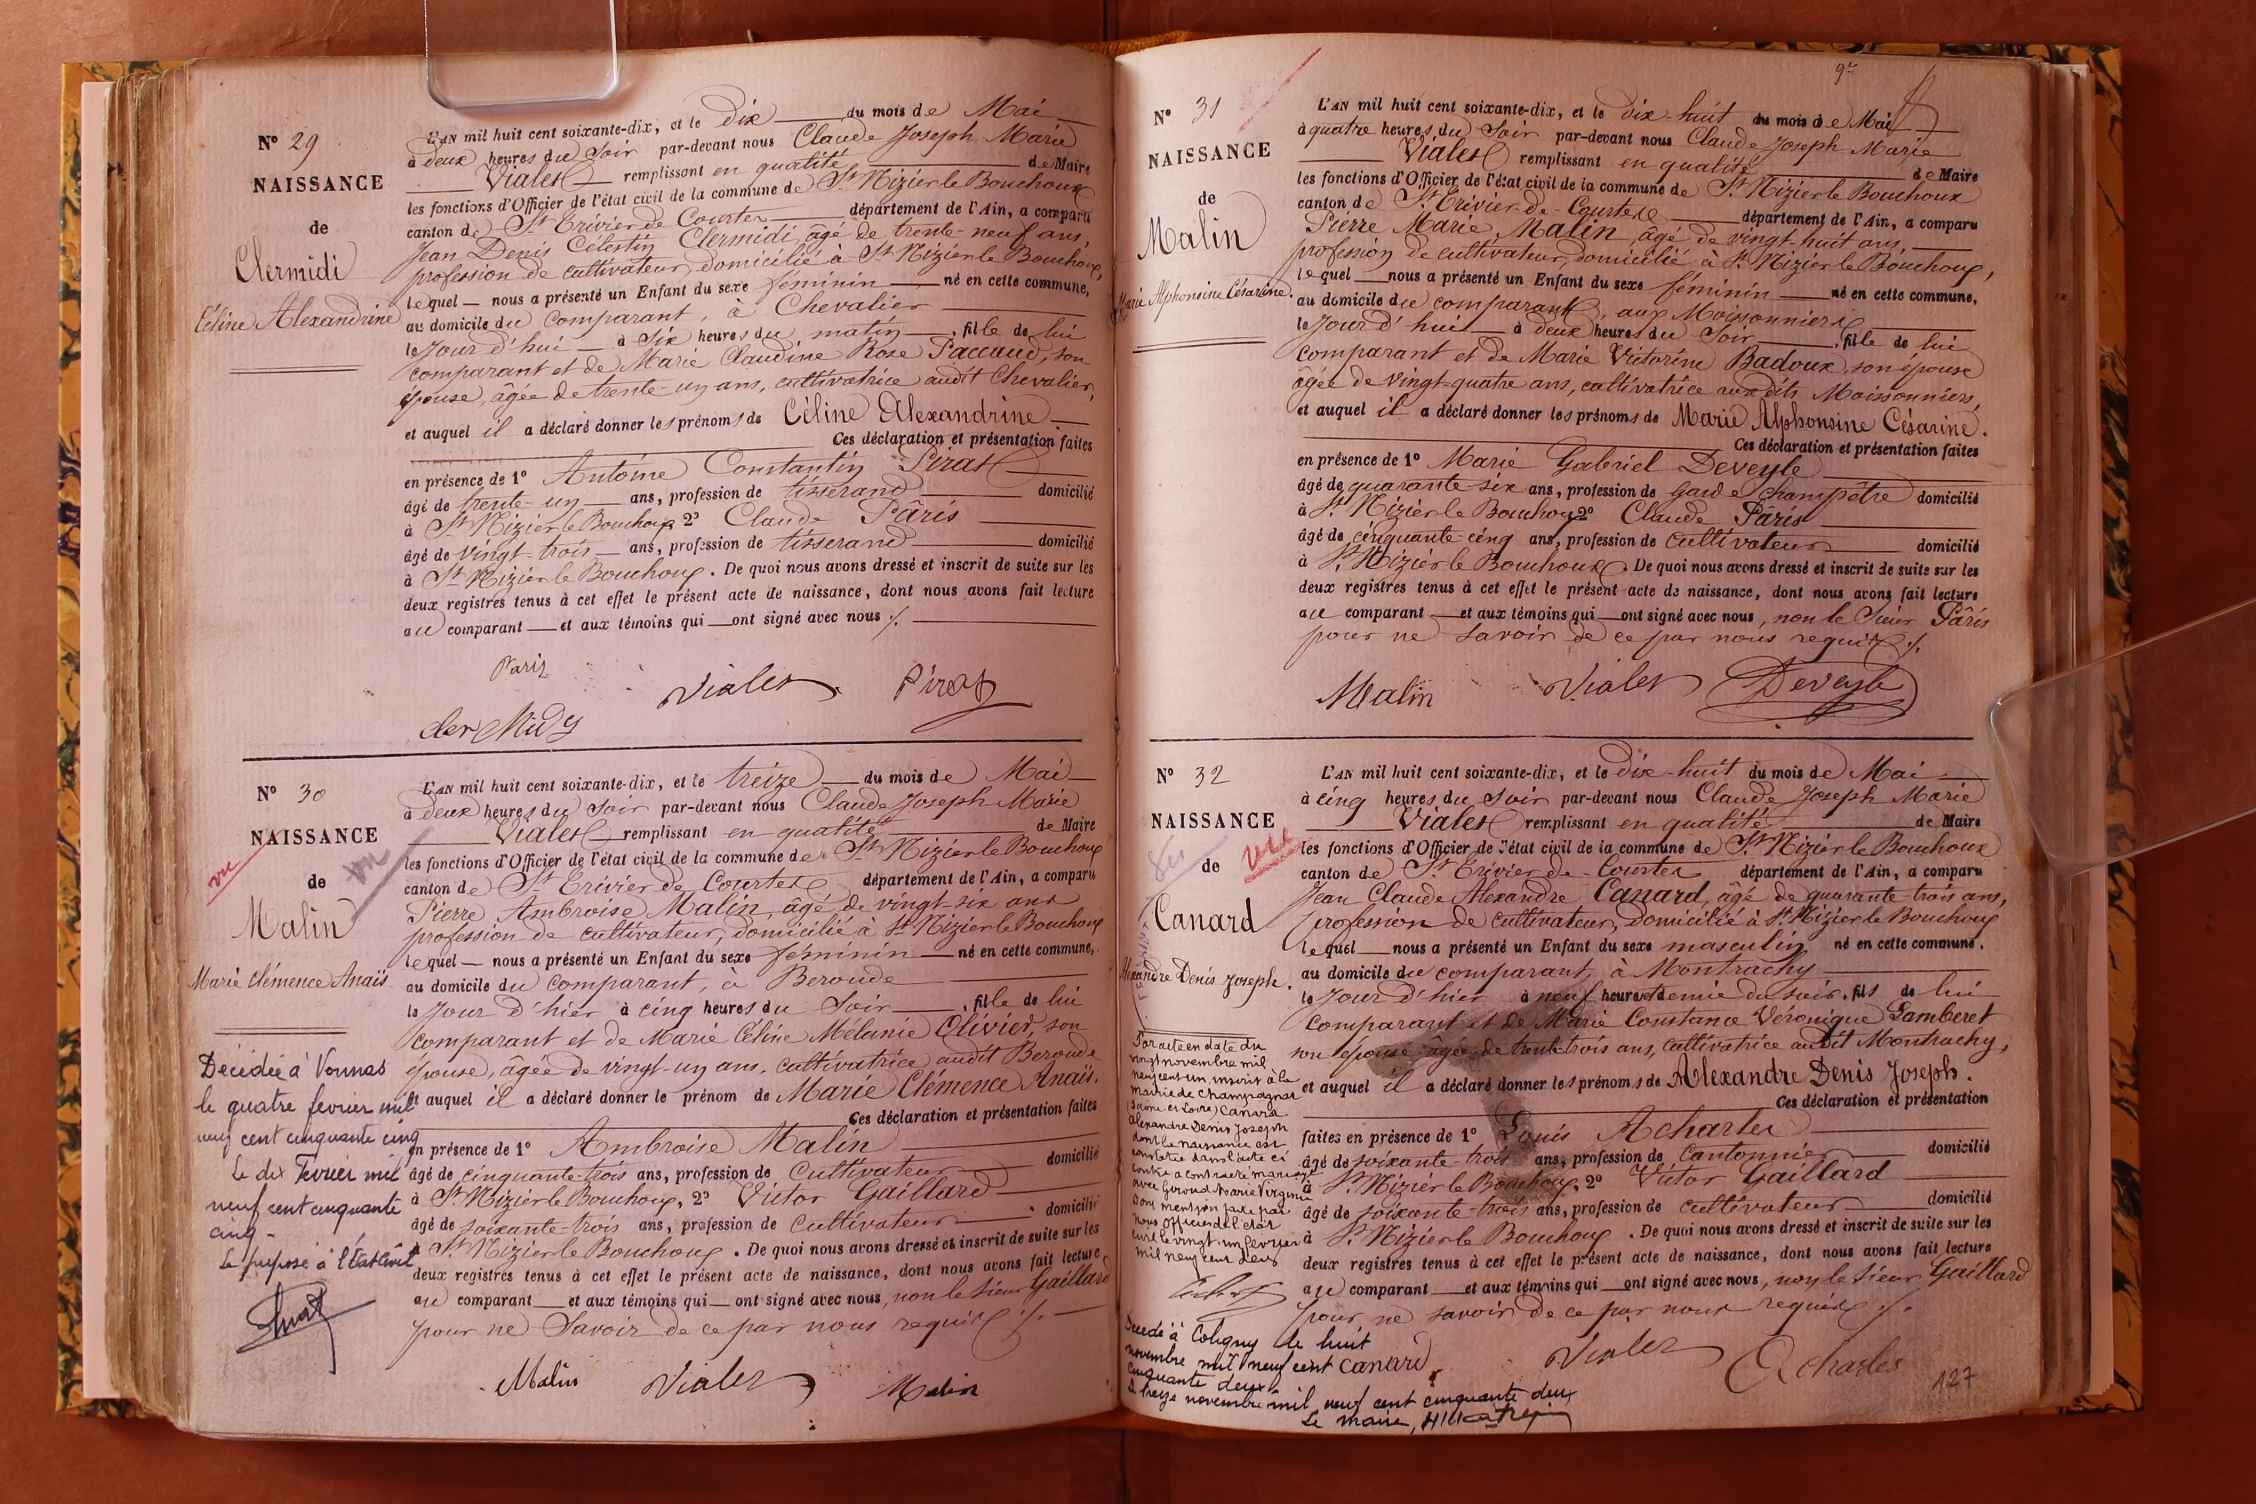 N° 29
NAISSANCE
de
Clermidi
Céline Alexandrine
L'AN mil huit cent soixante-dix, et le dix du mois de Mai
à deux heures du Soir par-devant nous Claude Joseph Marie
Vialet remplissant en qualité de Maire
les fonctions d'Officier de l'état civil de la commune de St Nizier le Bouchoux
canton de St Trivier de Courtes département de l'Ain, a comparu
Jean Denis Célestin Clermidi, âgé de trente-neuf ans,
profession de cultivateur, domicilié à St Nizier le Bouchoux,
lequel nous a présenté un Enfant du sexe féminin né en cette commune,
au domicile du comparant, à Chevalier
le Jour d'hui à six heures du matin, fille de lui
comparant et de Marie Claudine Rose Paccaud, son
épouse, âgée de trente-un ans, cultivatrice audit Chevalier,
et auquel il a déclaré donner les prénoms de Céline Alexandrine
Ces déclaration et présentation faites
en présence de 1° Antoine Constantin Pirat
âgé de trente-un ans, profession de tisserand domicilié
à St Nizier le Bouchoux 2° Claude Pâris
âgé de vingt-trois ans, profession de tisserand domicilié
à St Nizier le Bouchoux. De quoi nous avons dressé et inscrit de suite sur les
deux registres tenus à cet effet le présent acte de naissance, dont nous avons fait lecture
au comparant et aux témoins qui ont signé avec nous ./.
Paris
Vialet Pirat
N° 30
NAISSANCE
vu
de
Malin
Marie Clémence Anaïs
Décédée à Vonnas
le quatre fevrier mil
neuf cent cinquante cinq
Le dix Fevrier mil
neuf cent cinquante
cinq -
Le préposé à l'Etat Civil
L'AN mil huit cent soixante-dix, et le treize du mois de Mai
à deux heures du Soir par-devant nous Claude Joseph Marie
Vialet remplissant en qualité de Maire
les fonctions d'Officier de l'état civil de la commune de St Nizier le Bouchoux
canton de St Trivier de Courtes département de l'Ain, a comparu
Pierre Ambroise Malin, âgé de vingt-six ans
profession de cultivateur, domicilié à St Nizier le Bouchoux
lequel nous a présenté un Enfant du sexe féminin né en cette commune,
au domicile du comparant, à Beroude
le Jour d'hier à cinq heures du Soir, fille de lui
comparant et de Marie Céline Mélanie Olivier, son
épouse, âgée de vingt-un ans, cultivatrice audit Beroude
et auquel il a déclaré donner le prénom de Marie Clémence Anaïs.
Ces déclaration et présentation faites
en présence de 1° Ambroise Malin
âgé de cinquante-trois ans, profession de Cultivateur domicilié
à St Nizier le Bouchoux, 2° Victor Gaillard
âgé de soixante-trois ans, profession de Cultivateur domicilié
à St Nizier le Bouchoux. De quoi nous avons dressé et inscrit de suite sur les
deux registres tenus à cet effet le présent acte de naissance, dont nous avons fait lecture
au comparant et aux témoins qui ont signé avec nous, non le sieur Gaillard
pour ne Savoir de ce par nous requis ./.
Malin Vialet Malin
N° 31
NAISSANCE
de
Malin
Marie Alphonsine Césarine.
L'AN mil huit cent soixante-dix, et le dix-huit du mois de Mai
à quatre heures du Soir par-devant nous Claude Joseph Marie
Vialet remplissant en qualité de Maire
les fonctions d'Officier de l'état civil de la commune de St Nizier le Bouchoux
canton de St Trivier de Courtes département de l'Ain, a comparu
Pierre Marie Malin, âgé de vingt-huit ans,
profession de cultivateur, domicilié à St Nizier le Bouchoux,
lequel nous a présenté un Enfant du sexe féminin né en cette commune,
au domicile du comparant, aux Moissonniers
le Jour d'hui à deux heures du Soir, fille de lui
comparant et de Marie Victorine Badoux, son épouse
âgée de vingt-quatre ans, cultivatrice auxdits Moissonniers,
et auquel il a déclaré donner les prénoms de Marie Alphonsine Césarine.
Ces déclaration et présentation faites
en présence de 1° Marie Gabriel Deveyle
âgé de quarante-six ans, profession de garde champêtre domicilié
à St Nizier le Bouchoux 2° Claude Pâris
âgé de cinquante-cinq ans, profession de cultivateur domicilié
à St Nizier le Bouchoux. De quoi nous avons dressé et inscrit de suite sur les
deux registres tenus à cet effet le présent acte de naissance, dont nous avons fait lecture
au comparant et aux témoins qui ont signé avec nous, non le Sieur Pâris
pour ne Savoir de ce par nous requis ./.
Malin Vialet Deveyle
N° 32
NAISSANCE
vu
de
Canard
Alexandre Denis Joseph.
Par acte en date du
vingt novembre mil
neuf cent un, inscrit à la
mairie de Champagnat
(Saône et Loire) Canard
Alexandre Denis Joseph
dont la naissance est
constatée dans l'acte ci
contre a contracté mariage
avec Giroud Marie Virginie
Dont mention faite par
Nous officier de l'état
civil le vingt un février
mil neuf cent deux
Décédé à Coligny le huit
novembre mil neuf cent
cinquante deux
Le treize novembre mil neuf cent cinquante deux
Le maire,
L'AN mil huit cent soixante-dix, et le dix-huit du mois de Mai
à cinq heures du Soir par-devant nous Claude Joseph Marie
Vialet remplissant en qualité de Maire
les fonctions d'Officier de l'état civil de la commune de St Nizier le Bouchoux
canton de St Trivier de Courtes département de l'Ain, a comparu
Jean Claude Alexandre Canard, âgé de quarante trois ans,
profession de cultivateur, domicilié à St Nizier le Bouchoux
lequel nous a présenté un Enfant du sexe masculin né en cette commune,
au domicile du comparant, à Montrachy
le Jour d'hier à neuf heures et demie du soir, fils de lui
comparant et de Marie Constance Véronique Gamberet
son épouse âgée de trente trois ans, cultivatrice audit Montrachy,
et auquel il a déclaré donner les prénoms de Alexandre Denis Joseph.
Ces déclaration et présentation
faites en présence de 1° Louis Acharles
âgé de soixante-trois ans, profession de Cantonnier domicilié
à St Nizier le Bouchoux, 2° Victor Gaillard
âgé de soixante-trois ans, profession de cultivateur domicilié
à St Nizier le Bouchoux. De quoi nous avons dressé et inscrit de suite sur les
deux registres tenus à cet effet le présent acte de naissance, dont nous avons fait lecture
au comparant et aux témoins qui ont signé avec nous, non le sieur Gaillard
pour ne savoir de ce par nous requis ./.
Canard Vialet Acharles
127